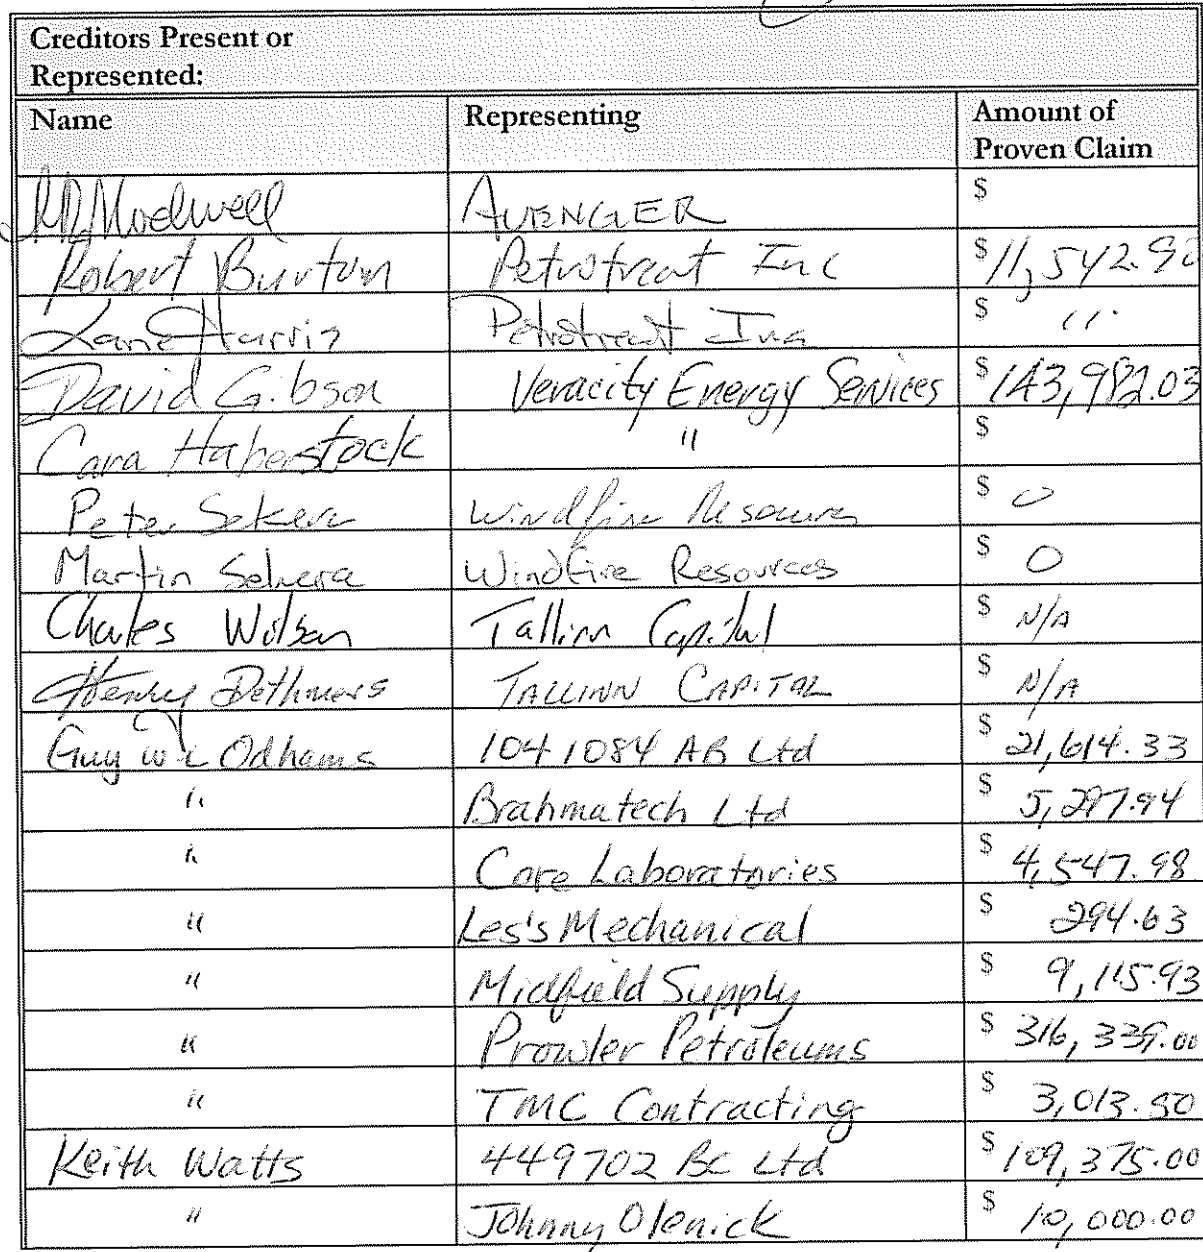 Creditors Present or
Represented:
Name Representing Amount of
Proven Claim
AVENGER $
Robert Burton Petrotreat Inc $11,542.92
Lane Harris Petrotreat Inc $ "
David Gibson Veracity Energy Services $143,982.03
Cara Haberstock " $
Peter Sekera Windfire Resources $ 0
Martin Sekera Windfire Resources $ 0
Charles Wilson Tallinn Capital $ N/A
Henry Dethmers TALLINN CAPITAL $ N/A
Guy W L Odhams 1041084 AB Ltd $ 21,614.33
" Brahmatech Ltd $ 5,297.94
" Core Laboratories $ 4,547.98
" Les's Mechanical $ 294.63
" Midfield Supply $ 9,115.93
" Prowler Petroleums $ 316,339.00
" TMC Contracting $ 3,013.50
Keith Watts 449702 BC Ltd $109,375.00
" Johnny Olenick $ 10,000.00